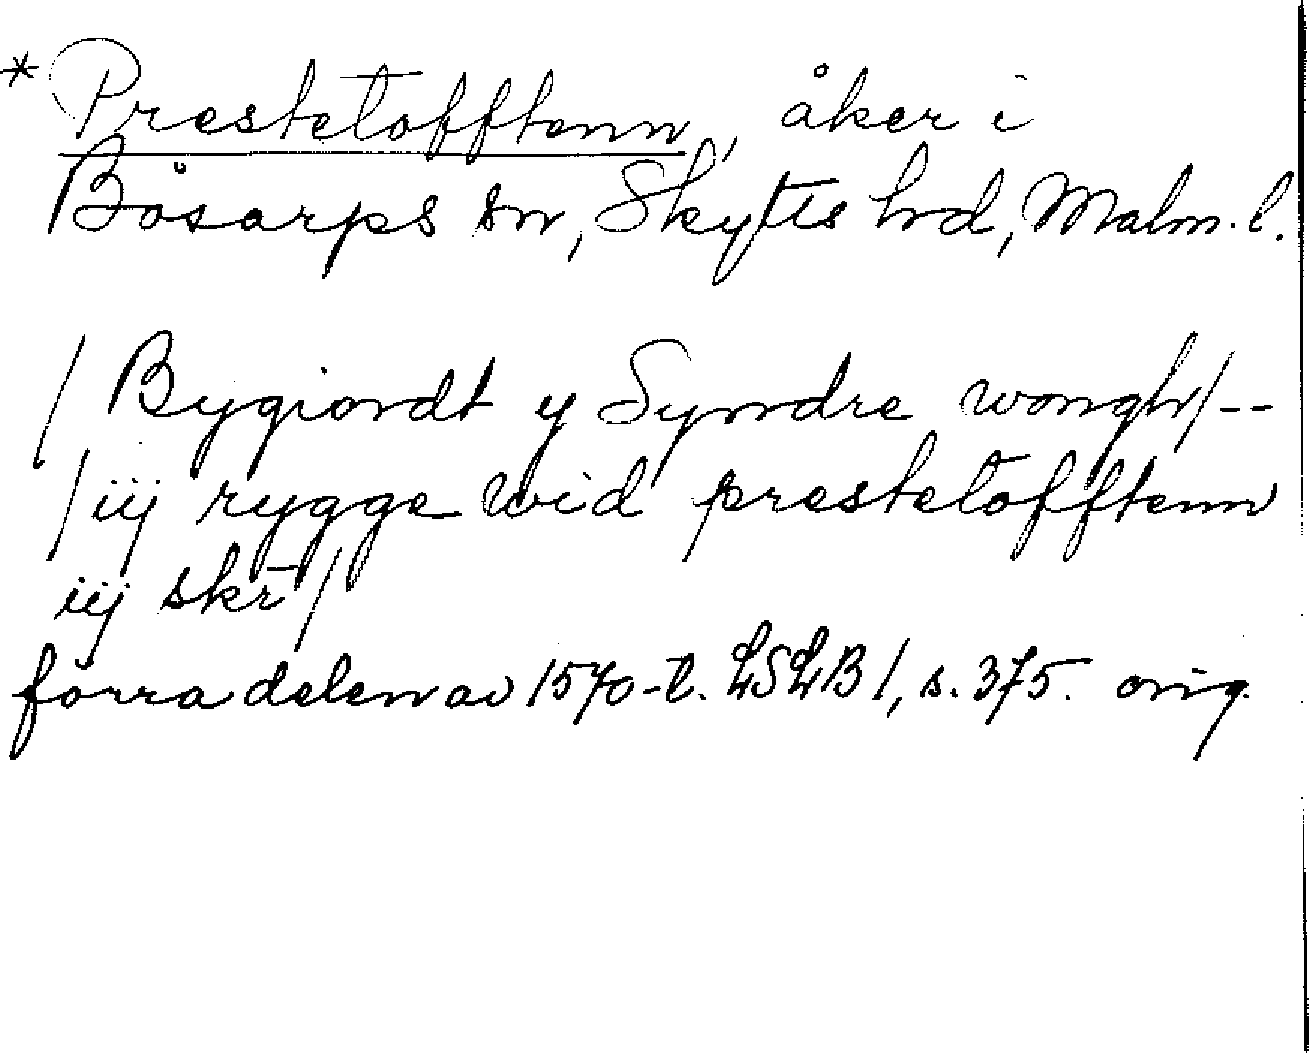 * Prestetofftenn, åker i
Bösarps sn, Skytts hd, Malm. l.
/Bygiordt y Syndre wongh/--
/iij rygge wid prestetofftenn
iij skr/
förra delen av 1570-t. LSLB 1, s. 375. orig.